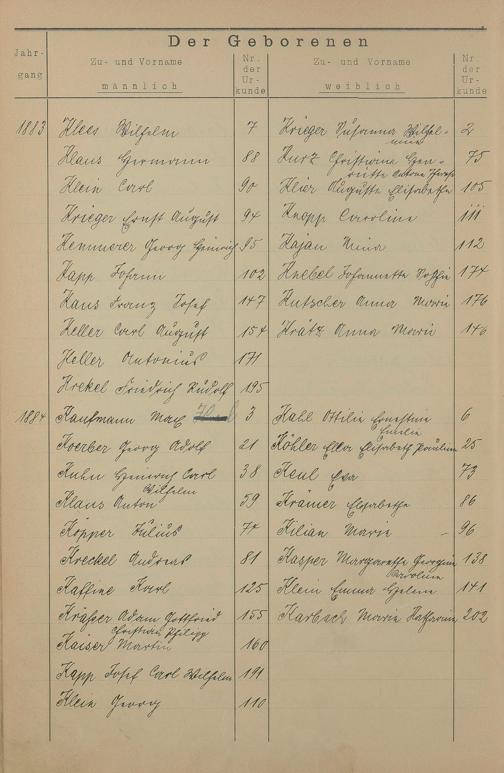 Der Geborenen
Jahr-
gang
Zu- und Vorname
männlich
Nr.
der
Ur-
kunde
Zu- und Vorname
weiblich
Nr.
der
Ur-
kunde
1883 Klees Wilhelm 7 Krieger Susanna Wilhel- 2
mine
Klaus Hermann 88 Kurz Christiane Hen- 75
riette
Klein Carl 90 Klier Auguste Elisabetha 105
Krieger Ernst August 94 Knopp Caroline 111
Kemmerer Georg Heinrich 95 Kajan Nina 112
Kapp Johann 102 Knebel Johannette Sophie 174
Kaus Franz Josef 147 Kutscher Anna Marie 176
Keller Carl August 154 Krätz Anna Marie 146
Keller Antonius 171
Krekel Friedrich Rudolf 195
1884 Kaufmann Max 3 Kahl Ottilie Ernestine 6
Emilie
Koerber Georg Adolf 21 Köhler Ella Elisabeth Pauline 25
Kuhn Heinrich Carl 38 Keul Eva 73
Wilhelm
Klaus Anton 59 Krämer Elisabetha 86
Köpper Julius 74 Kilian Marie 96
Kreckel Andreas 81 Kasper Margarethe Georgine 138
Karoline
Kaffine Karl 125 Klein Emma Helene 141
Kräßer Adam Gottfried 155 Karbach Marie Katharina 202
Christian Philipp
Kaiser Martin 160
Kapp Josef Carl Wilhelm 191
Klein Georg 110